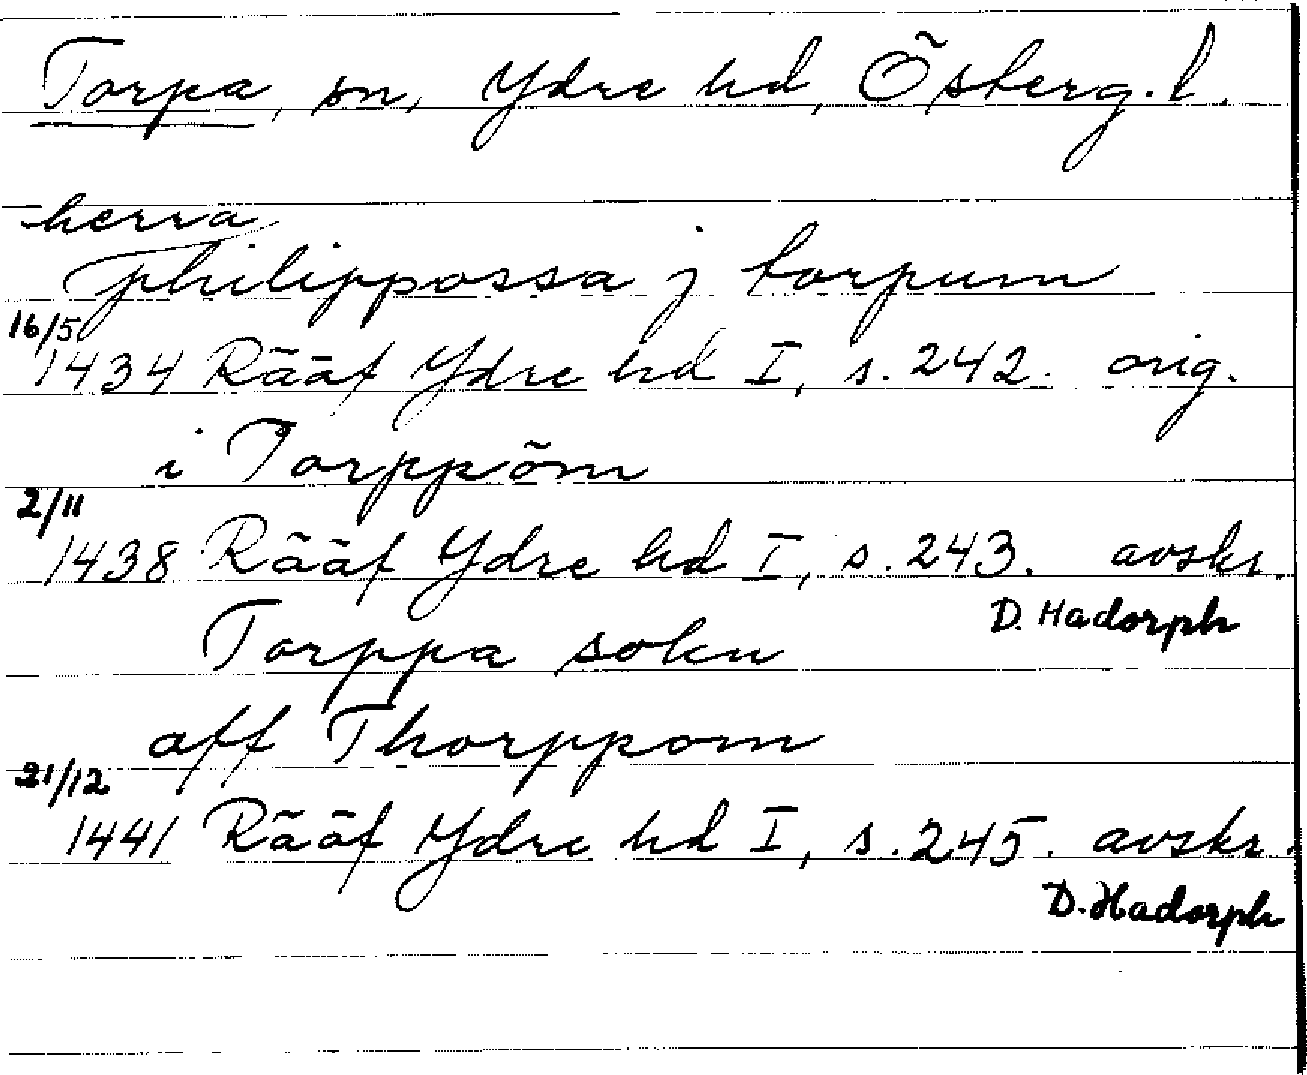 Torpa, sn, Ydre hd, Österg. l.
herra
philippossa j torpum
16/5
1434 Rääf Ydre hd I, s. 242. orig.
i Torppöm
2/11
1438 Rääf Ydre hd I, s. 243. avskr.
D. Hadorph
Torppa sokn
aff Thorppom
21/12
1441 Rääf Ydre hd I, s. 245. avskr.
D. Hadorph